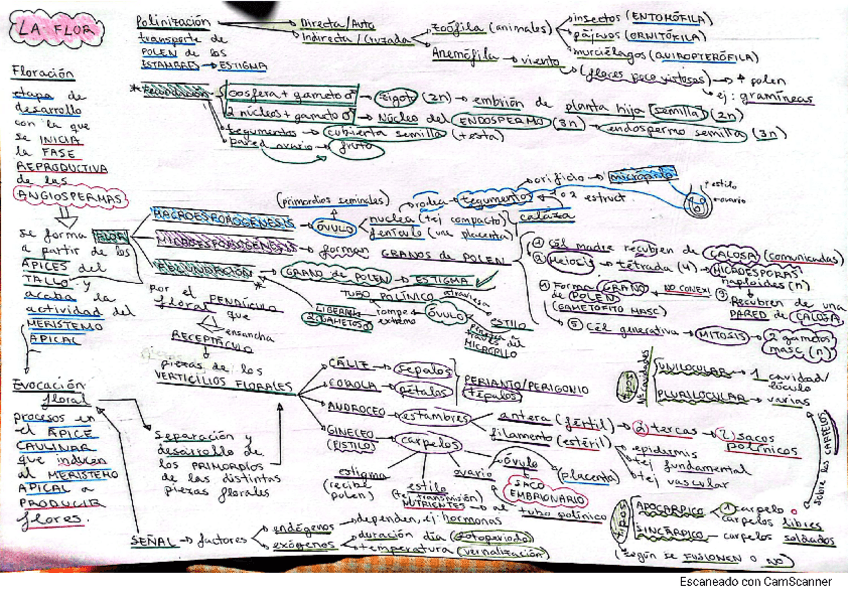 LA FLOR
Floración
etapa de
desarrollo
con la que
se INICIA
la FASE
REPRODUCTIVA
de las
ANGIOSPERMAS
se forma FLOR
a partir de los
ÁPICES del
TALLO y
acaba la
actividad del
MERISTEMO
APICAL
Evocación
floral
procesos en
el ÁPICE
CAULINAR
que inducen
al MERISTEMO
APICAL a
PRODUCIR
flores.
Polinización
transporte de
POLEN de los
ESTAMBRES → ESTIGMA
Directa/Auto
Indirecta/Cruzada
Zoófila (animales)
insectos (ENTOMÓFILA)
pájaros (ORNITÓFILA)
murciélagos (QUIROPTERÓFILA)
Anemófila → viento
(flores poco vistosas) → + polen
ej: gramíneas
* Fecundación
oosfera + gameto ♂ → zigoto (2n) → embrión de planta hija semilla (2n)
2 núcleos + gameto ♂ → Núcleo del ENDOSPERMO (3n) → endospermo semilla (3n)
tegumentos → cubierta semilla (testa)
pared ovario → fruto
MACROESPOROGÉNESIS → ÓVULO
(primordios seminales)
rodea → tegumentos 1 o 2 estruct.
orificio → micrópilo
estilo
ovario
nucela (tej compacto)
calaza
funículo (une placenta)
MICROESPOROGÉNESIS → forman GRANOS de POLEN
FECUNDACIÓN → GRANO de POLEN → ESTIGMA
*
TUBO POLÍNICO atraviesa
ESTILO
LIBERAN
2 GAMETOS
rompe extremo
ÓVULO
penetra a través del
MICRÓPILO
① Cél madre recubren de CALOSA (comunicadas)
② Meiosis → tétrada (4) → MICROESPORAS
haploides (n)
③ Recubren de una
PARED de CALOSA
NO CONEXI
④ Forma GRANO
de POLEN
(GAMETOFITO MASC)
⑤ Cél generativa → MITOSIS → 2 gametos
masc (n)
por el PEDÚNCULO
floral que
ensancha
RECEPTÁCULO
piezas de los
VERTICILOS FLORALES
CÁLIZ → sépalos
COROLA → pétalos
PERIANTO/PERIGONIO
tépalos
ANDROCEO → estambres
antera (fértil) → 2 tecas → 2 sacos
polínicos
filamento (estéril)
epidermis
tej fundamental
tej vascular
GINECEO → carpelos
(PISTILO)
estigma
(recibe
polen)
estilo
(tej transmisión)
NUTRIENTES → al tubo polínico
ovario
óvulo
placenta
SACO
EMBRIONARIO
Separación y
desarrollo de
los PRIMORDIOS
de las distintas
piezas florales
SEÑAL → factores
endógenos → dependen, ej hormonas
exógenos
duración día (fotoperiodo)
temperatura (vernalización)
UNILOCULAR → 1 cavidad/
lóculo
PLURILOCULAR → varias
sobre los CARPELOS
tipos
APOCÁRPICO → 1 carpelo o
carpelos libres
SINCÁRPICO → carpelos soldados
(según se FUSIONEN o NO)
Escaneado con CamScanner